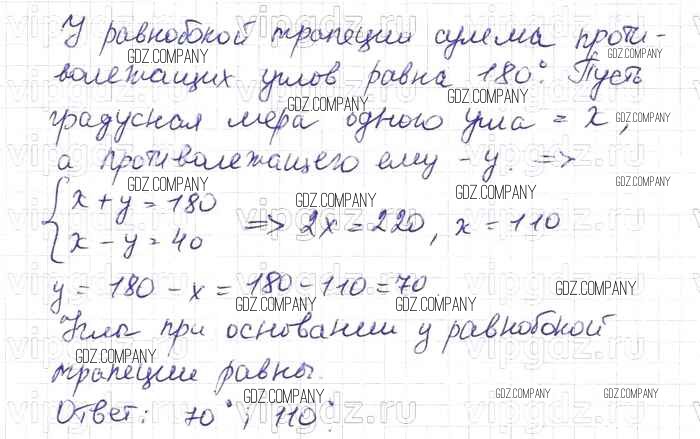 У равнобокой трапеции сумма проти-
волежащих углов равна 180°. Пусть
градусная мера одного угла = x,
а противолежащего ему - y. =>
{ x + y = 180
x - y = 40 => 2x = 220, x = 110
y = 180 - x = 180 - 110 = 70
Углы при основании у равнобокой
трапеции равны.
Ответ: 70°, 110°.